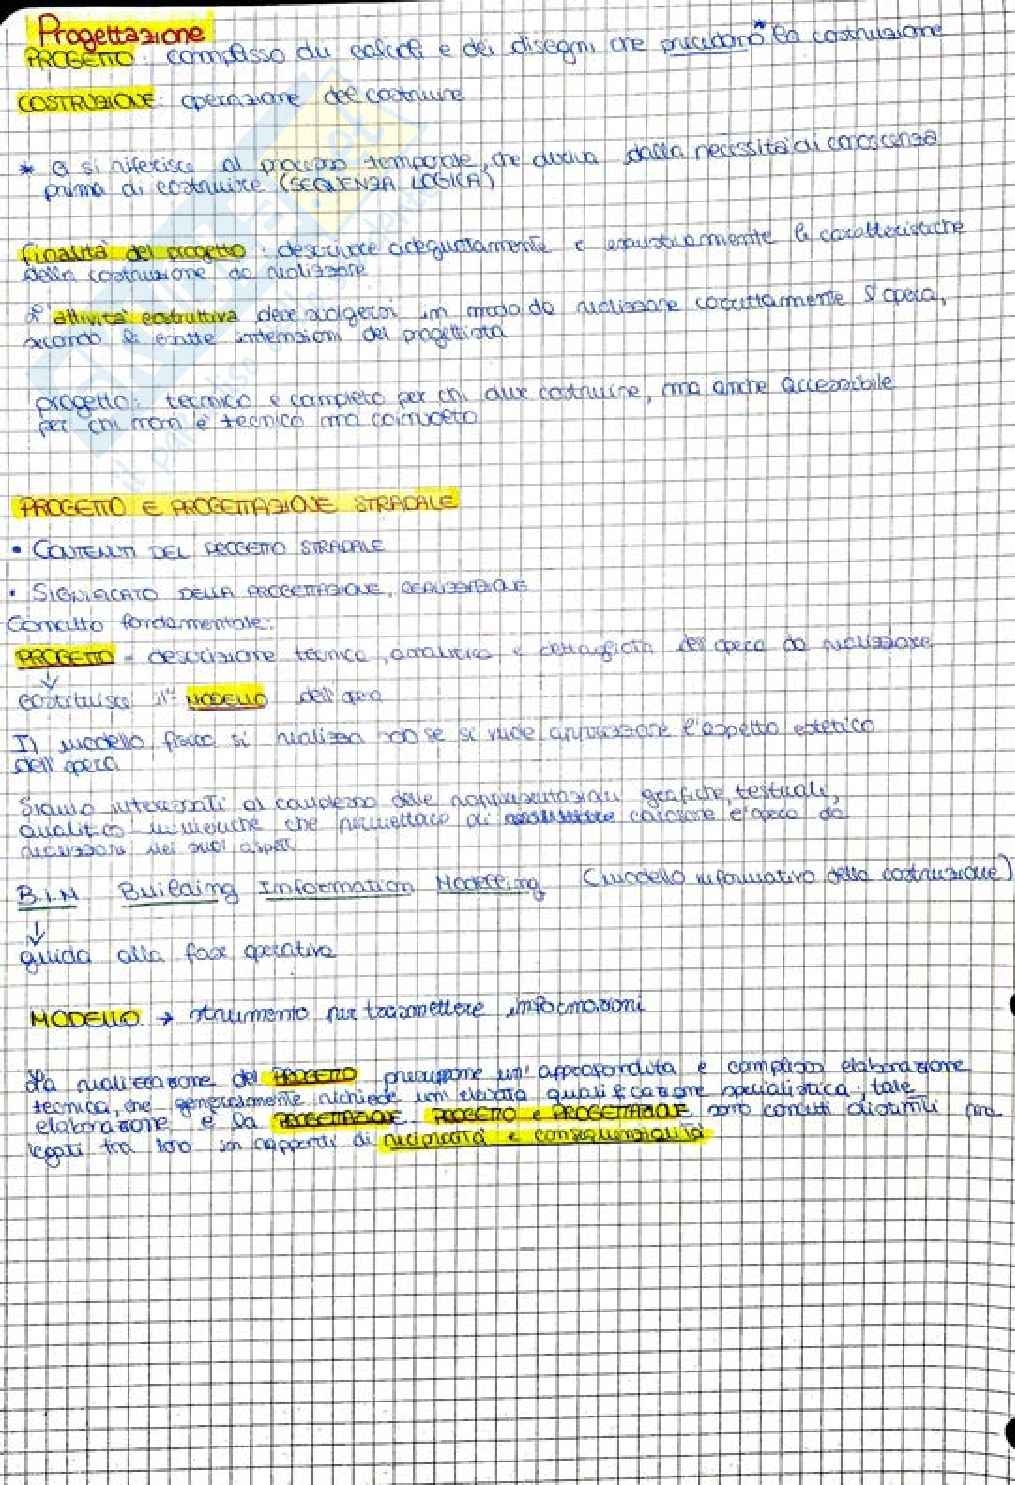 Progettazione
PROGETTO: complesso dei calcoli e dei disegni che precedono* la costruzione
COSTRUZIONE: operazione del costruire
* ci si riferisce al processo temporale, che deriva dalla necessità di conoscenza
prima di costruire (SEQUENZA LOGICA)
finalità del progetto: descrivere adeguatamente e esaustivamente le caratteristiche
della costruzione da realizzare
L'attività costruttiva deve svolgersi in modo da realizzare correttamente l'opera,
secondo le esatte intenzioni del progettista
progetto: tecnico e completo per chi deve costruire, ma anche accessibile
per chi non è tecnico ma coinvolto
PROGETTO E PROGETTAZIONE STRADALE
• CONTENUTI DEL PROGETTO STRADALE
• SIGNIFICATO DELLA PROGETTAZIONE, REALIZZAZIONE
Concetto fondamentale:
PROGETTO = descrizione tecnica, analitica e dettagliata dell'opera da realizzare
↓
costituisce il MODELLO dell'opera
Il modello fisico si realizza solo se si vuole apprezzare l'aspetto estetico
dell'opera
Siamo interessati al complesso delle rappresentazioni grafiche, testuali,
analitico numeriche che permettano di costruire l'opera da
realizzare nei suoi aspetti
B.I.M. Building Information Modelling (modello informativo della costruzione)
↓
guida alla fase operativa
MODELLO → strumento per trasmettere informazioni
La realizzazione del PROGETTO presuppone un'approfondita e complessa elaborazione
tecnica, che generalmente richiede un'elevata qualificazione specialistica; tale
elaborazione è la PROGETTAZIONE. PROGETTO e PROGETTAZIONE sono concetti distinti ma
legati tra loro in rapporti di reciprocità e consequenzialità